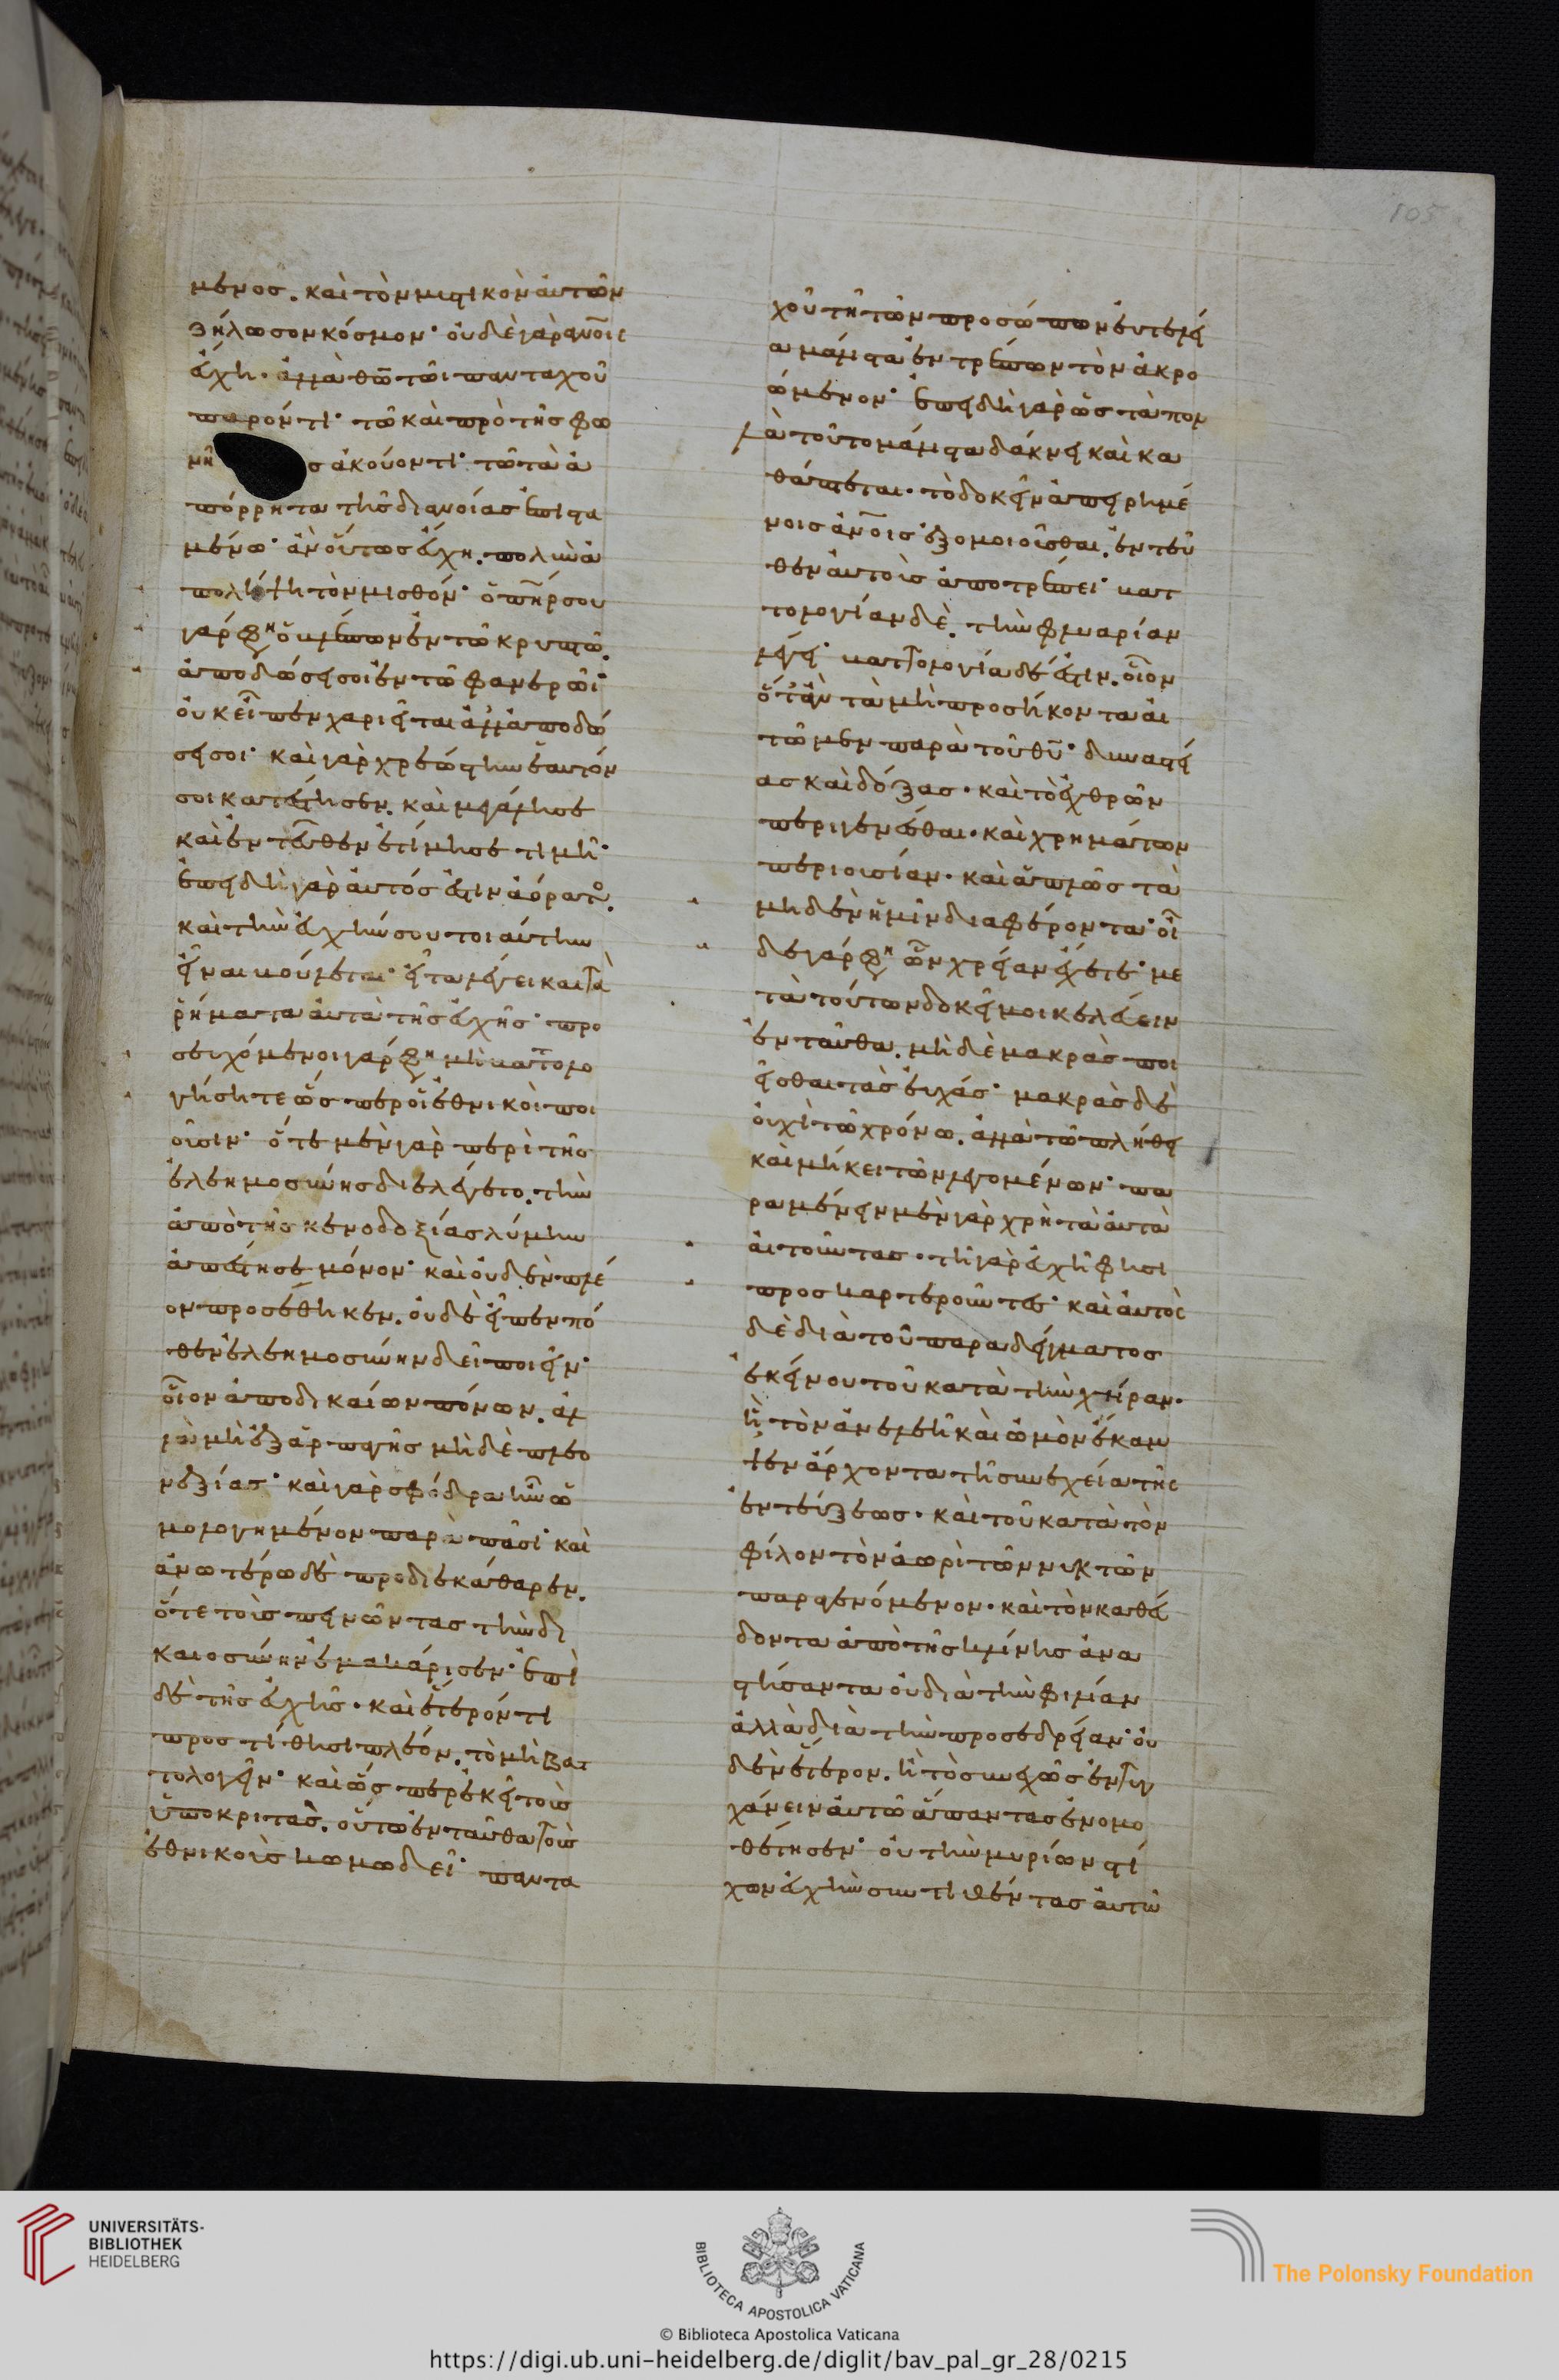 μενος. καὶ τὸν μυστικὸν αὐτῶν
ζήλωσον κόσμον· οὐδὲ γὰρ ἀνοις
εὔχη. ἀλλὰ θω τῶι πανταχοῦ
παρόντι· τῶ καὶ πρὸ τῆς φω
νῆ ς ἀκούοντι· τῶ τὰ ἀ
πόρρητα τῆς διανοίας ἐπιστα
μένω· ἂν οὕτως εὔχη. πολὺν ἀ
πολήψη τὸν μισθόν· ὁ πηρ σου
γάρ φη ὁ βλέπων ἐν τῶ κρυπτῶ.
ἀποδώσει σοι ἐν τῶ φανερῶι·
οὐκ εἶπεν χαριεῖται ἀλλ' ἀποδώ
σει σοι· καὶ γὰρ χρεώστην ἑαυτόν
σοι κατέστησεν. καὶ μεγάλη σε
καὶ ἐντεῦθεν ἐτίμησε τιμῆ·
ἐπειδὴ γὰρ αὐτός ἐστιν ἀόρατος.
καὶ τὴν εὐχήν σου τοιαύτην
εἶναι βούλεται· εἶτα λέγει καὶ τὰ
ῥήματα αὐτὰ τῆς εὐχῆς· προ
σευχόμενοι γάρ φη μὴ βαττολο
γήσητε ὥσπερ οἱ ἐθνικοὶ ποι
οῦσιν· ὅτε μὲν γὰρ περὶ τῆς
ἐλεημοσύνης διελέγετο. τὴν
ἀπὸ τῆς κενοδοξίας λύμην
ἀπέστησε μόνον· καὶ οὐδὲν πλέ
ον προσέθηκεν. οὐδὲ εἶπεν πό
θεν ἐλεημοσύνην δεῖ ποιεῖν·
οἷον ἀπο δικαίων πόνων. ἀλ
λὰ μὴ ἐξ ἁρπαγῆς μὴ δὲ πλεο
νεξίας· καὶ γὰρ σφόδρα ἦν ὡ
μολογημένον παρὰ πᾶσι· καὶ
ἀνωτέρω δὲ προδιεκάθαρεν.
ὅτε τοὺς πεινῶντας τὴν δι
καιοσύνην ἐμακάρισεν· ἐπὶ
δὲ τῆς εὐχῆς. καὶ ἕτερόν τι
προστίθησι πλέον. τὸ μὴ βατ
τολογεῖν· καὶ ὥσπερ ἐκεῖ τοὺς
ὑποκριτάς. οὕτω ἐνταῦθα τοὺς
ἐθνικοὺς κωμωδεῖ· παντα
105
χοῦ τῆ τῶν προσώπων εὐτελεί
α μάλιστα ἐντρέπων τὸν ἀκρο
ώμενον· ἐπειδὴ γὰρ ὡς τὰ πολ
λὰ τοῦτο μάλιστα δάκνει καὶ κα
θάπτεται. τὸ δοκεῖν ἀπεριμέ
νοις ἀνοις ἐξομοιοῦσθαι. ἐντεῦ
θεν αὐτοὺς ἀποτρέπει· βατ
τολογίαν δὲ. τὴν φλυαρίαν
λέγει· βαττολογία δέ ἐστιν. οἷον
ὅταν τὰ μὴ προσήκοντα αἰ
τῶμεν παρὰ τοῦ θυ· δυναστεί
ας καὶ δόξας. καὶ τὸ ἐχθρῶν
περιγενέσθαι. καὶ χρημάτων
περιουσίαν. καὶ ἁπλῶς τὰ
μηδὲν ἡμῖν διαφέροντα· οἶ
δε γάρ φη ὧν χρείαν ἔχετε· με
τὰ τούτων δοκεῖ μοι κελεύειν
ἐνταῦθα. μὴ δὲ μακρὰς ποι
εῖσθαι τὰς εὐχάς· μακρὰς δὲ
οὐχὶ τῶ χρόνω. ἀλλὰ τῶ πλήθει
καὶ μήκει τῶν λεγομένων· πα
ραμένειν μὲν γὰρ χρὴ τὰ αὐτὰ
αἰτοῦντας. τῆ γὰρ εὐχῆ φησι
προσκαρτεροῦντες· καὶ αὐτὸς
δὲ διὰ τοῦ παραδείγματος
ἐκείνου τοῦ κατὰ τὴν χήραν.
ἣ τὸν ἀνελεῆ καὶ ὠμὸν ἔκαμ
ψεν ἄρχοντα τῆ συνεχεία τῆς
ἐντεύξεως. καὶ τοῦ κατὰ τὸν
φίλον τὸν ἀωρὶ τῶν νυκτῶν
παραγενόμενον. καὶ τὸν καθεύ
δοντα ἀπὸ τῆς κλίνης ἀνα
στήσαντα οὐ διὰ τὴν φιλίαν
ἀλλὰ διὰ τὴν προσεδρείαν· οὐ
δὲν ἕτερον. ἢ τὸ συνεχῶς ἐντυγ
χάνειν αὐτῶ ἅπαντας ἐνομο
θέτησεν· οὐ τὴν μυρίων στί
χων εὐχὴν συντιθέντας αὐτῶ
UNIVERSITÄTS-
BIBLIOTHEK
HEIDELBERG
BIBLIOTECA APOSTOLICA VATICANA
The Polonsky Foundation
© Biblioteca Apostolica Vaticana
https://digi.ub.uni-heidelberg.de/diglit/bav_pal_gr_28/0215